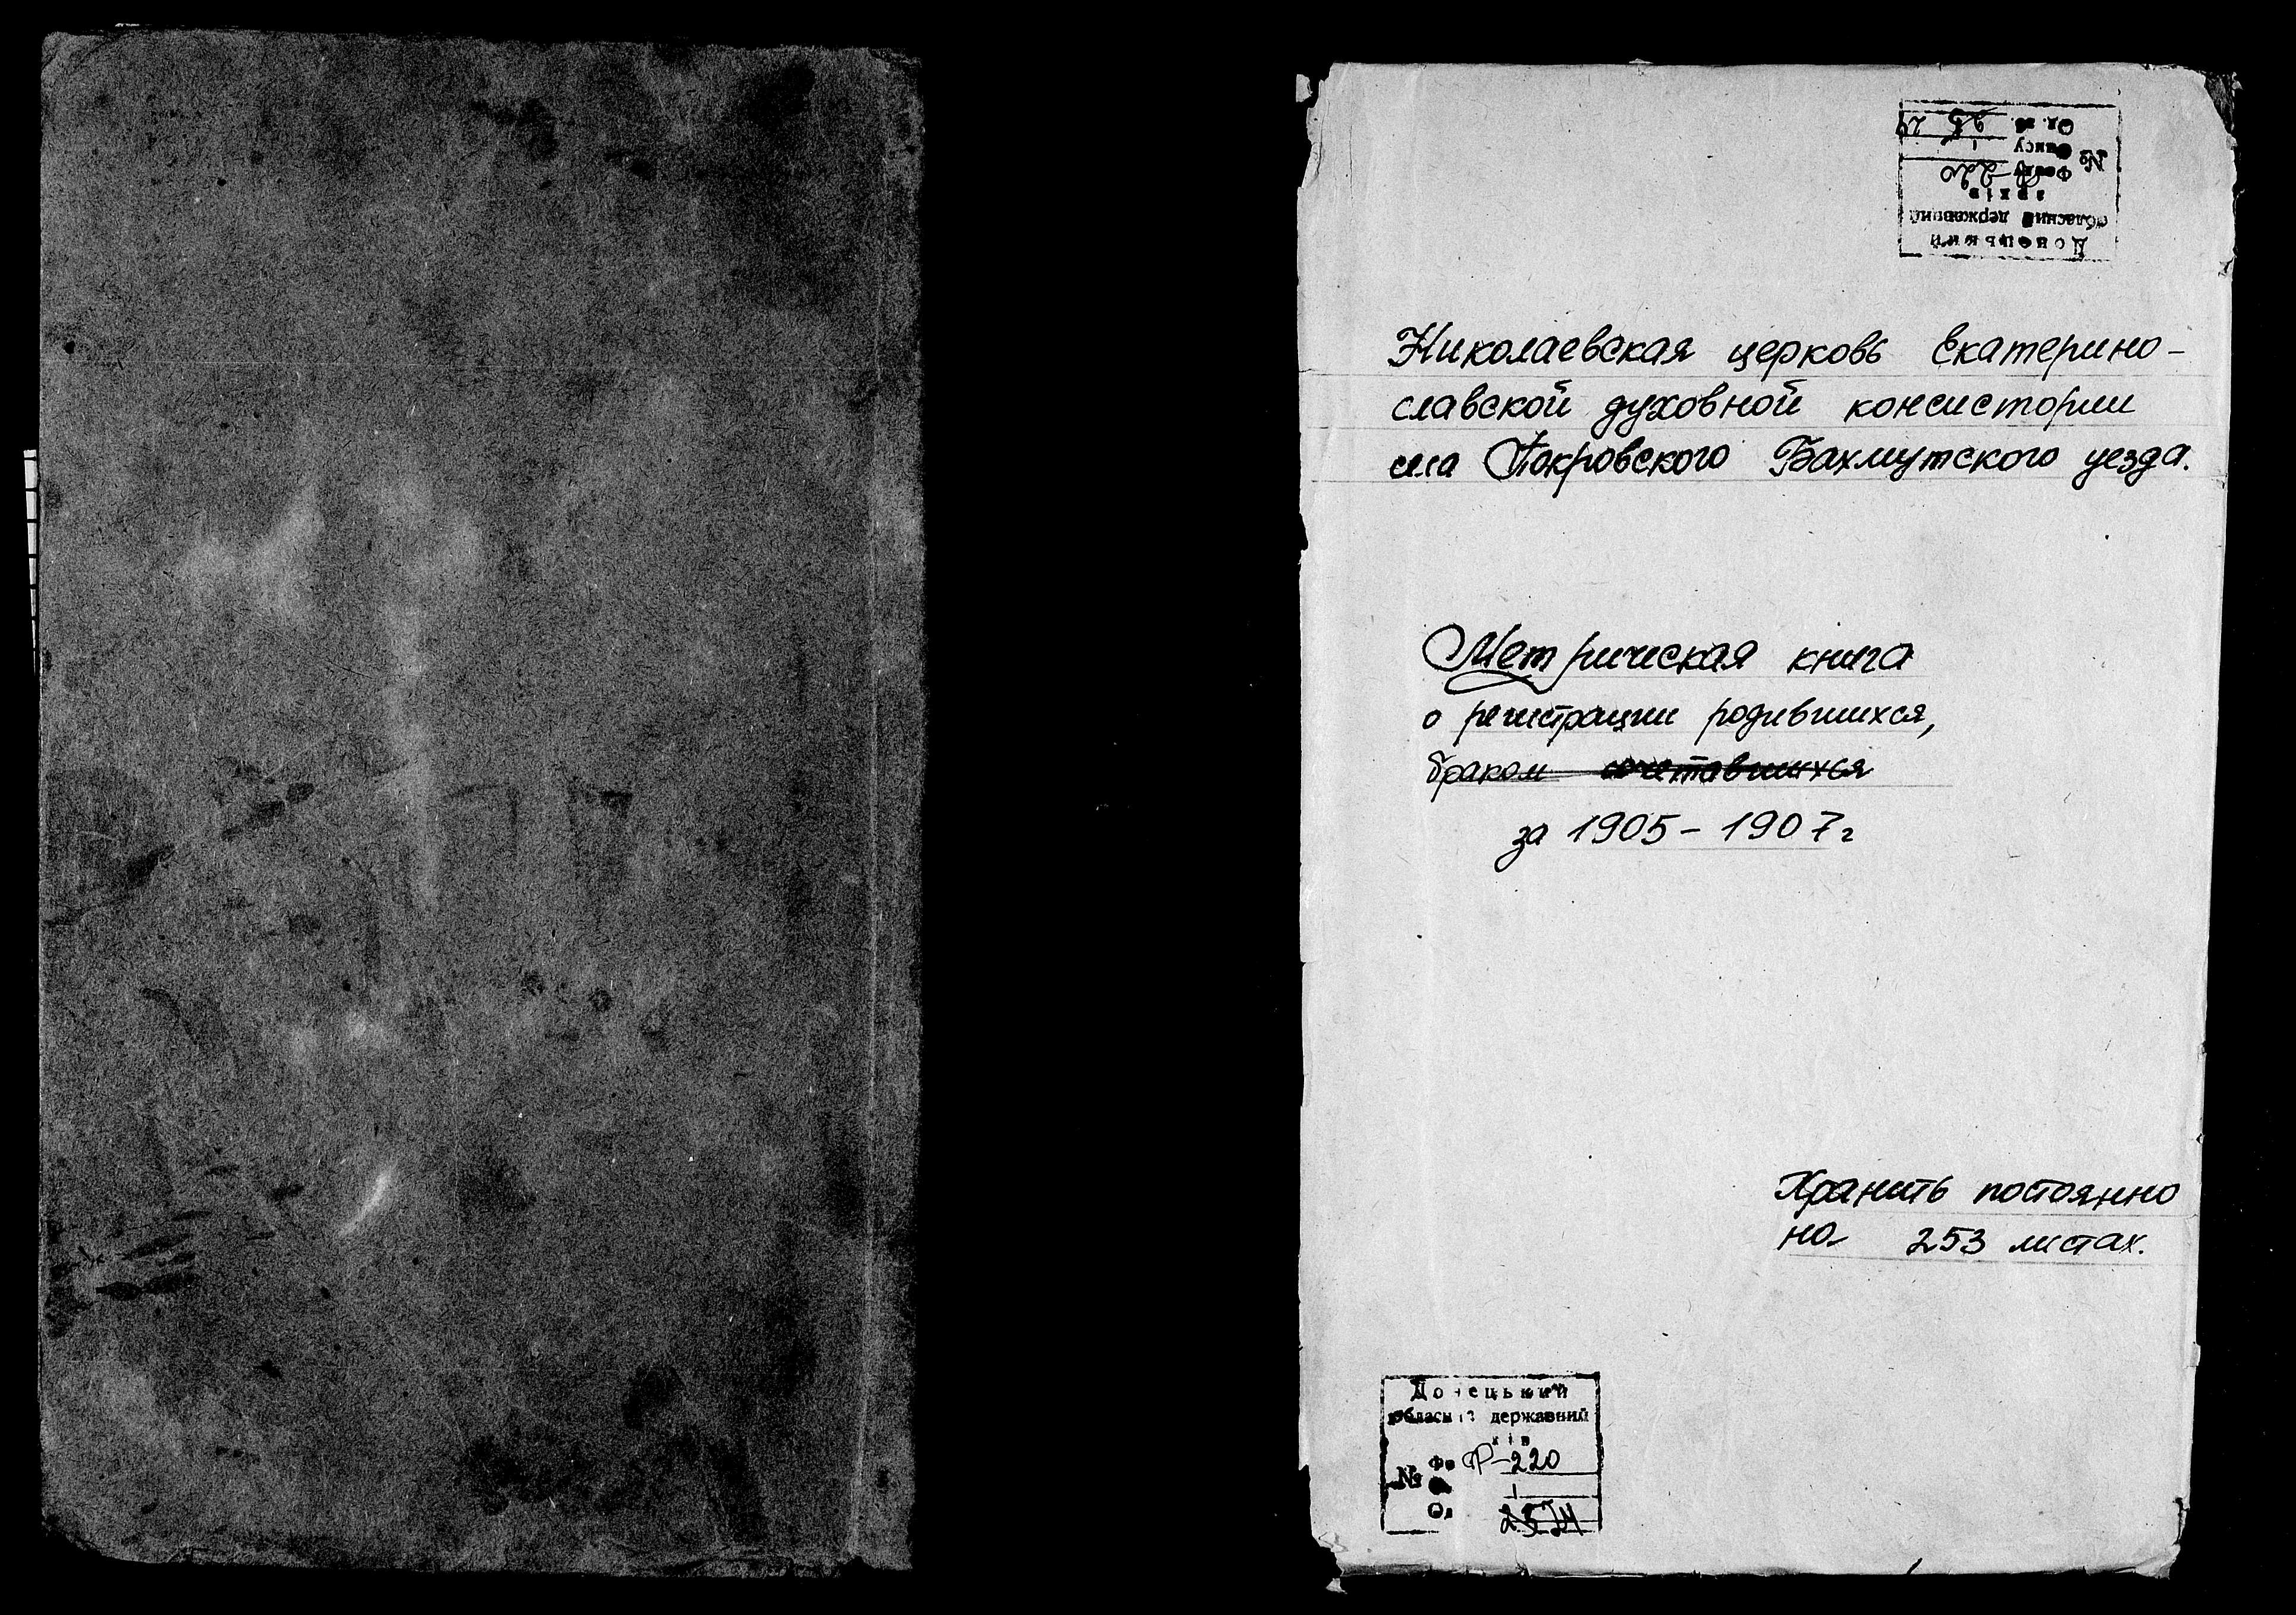 Донецький
обласний державний
архів
№ Фонду Р-220
Опису 1
Од. зб.
Николаевская церковь Екатерино-
славской духовной консистории
села Покровского Бахмутского уезда.
Метрическая книга
о регистрации родившихся,
браком сочетавшихся
за 1905 - 1907 г
Хранить постоянно
на 253 листах.
Донецький
обласн державний
хів
№ Фо Р-220
1
Од